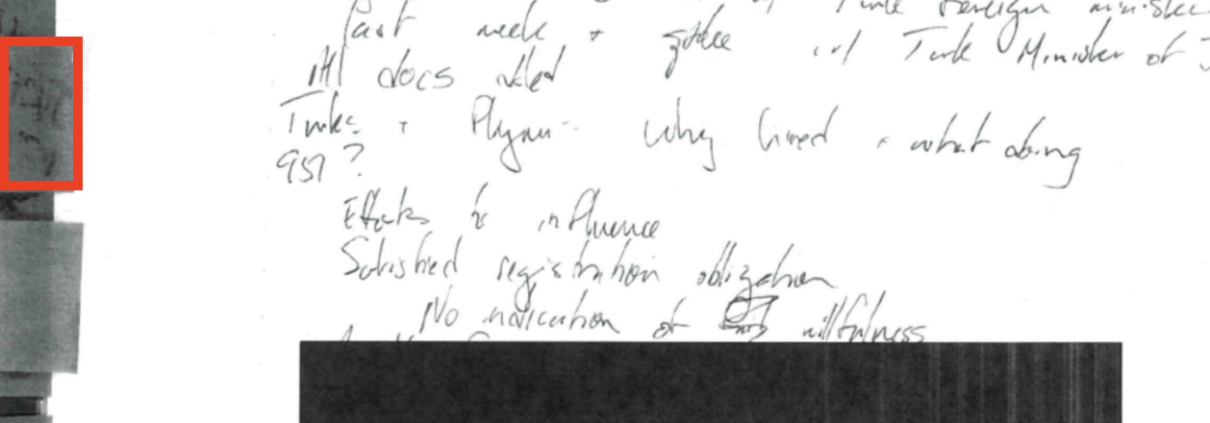 Past week + spoke w/ Turk Minister of J
All docs added
Turks + Flynn - Why hired + what doing
951?
Efforts to influence
Satisfied registration obligation
No indication of willfulness